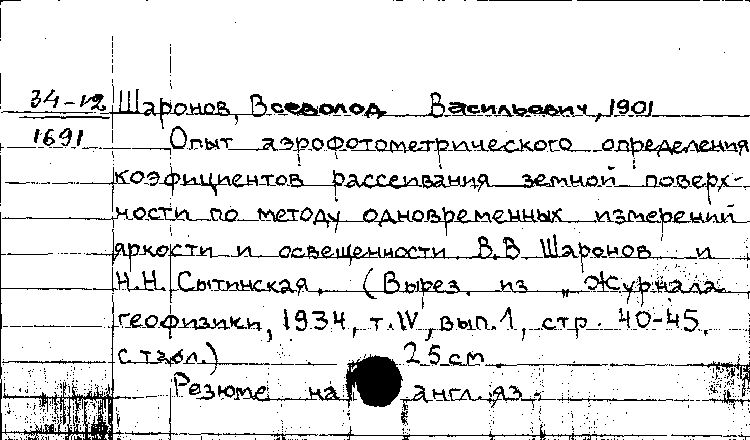 34-12 Шаронов, Всеволод Васильевич, 1901
1691 Опыт аэрофотометрического определения
коэфициентов рассеивания земной поверх-
ности по методу одновременных измерений
яркости и освещенности В.В Шаронов и
Н.Н. Сытинская. (Вырез. из „Журнала
геофизики, 1934, т.IV, вып.1, стр. 40-45.
с табл.) 25 см.
Резюме на англ. яз.